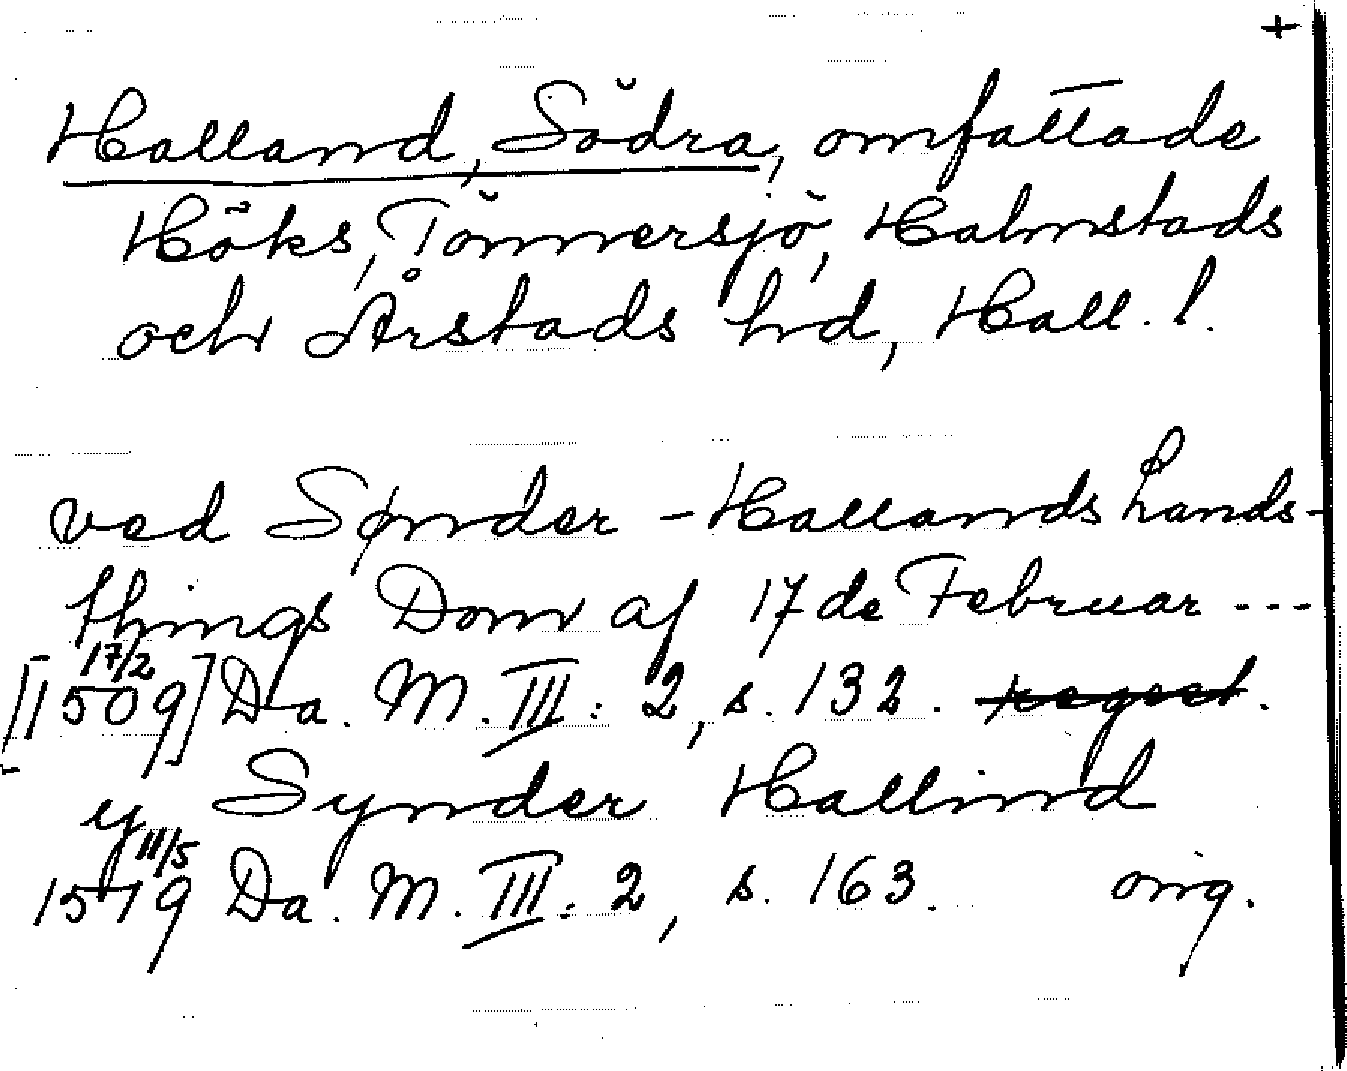 +
Halland, Södra, omfattade
Höks, Tönnersjö, Halmstads
och Årstads hd, Hall. l.
ved Sønder-Hallands Lands-
things Dom af 17de Februar ---
17/2
[1509] Da. M. III: 2, s. 132. regest.
y Synder Hallind
11/5
1519 Da. M. III: 2, s. 163. orig.